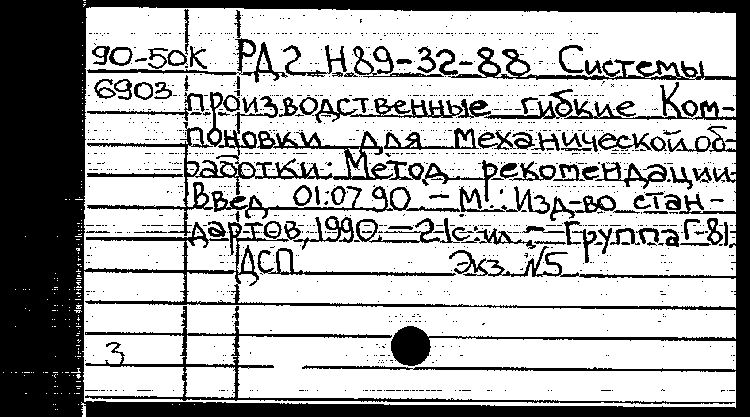 90-50К РД2 Н89-32-88 Системы
6903 производственные гибкие Ком-
поновки для механической об-
работки: Метод рекомендации.
Введ. 01.07.90. – М.: Изд-во стан-
дартов, 1990. – 21с.: ил. – Группа Г-81.
ДСП. Экз. №5
3